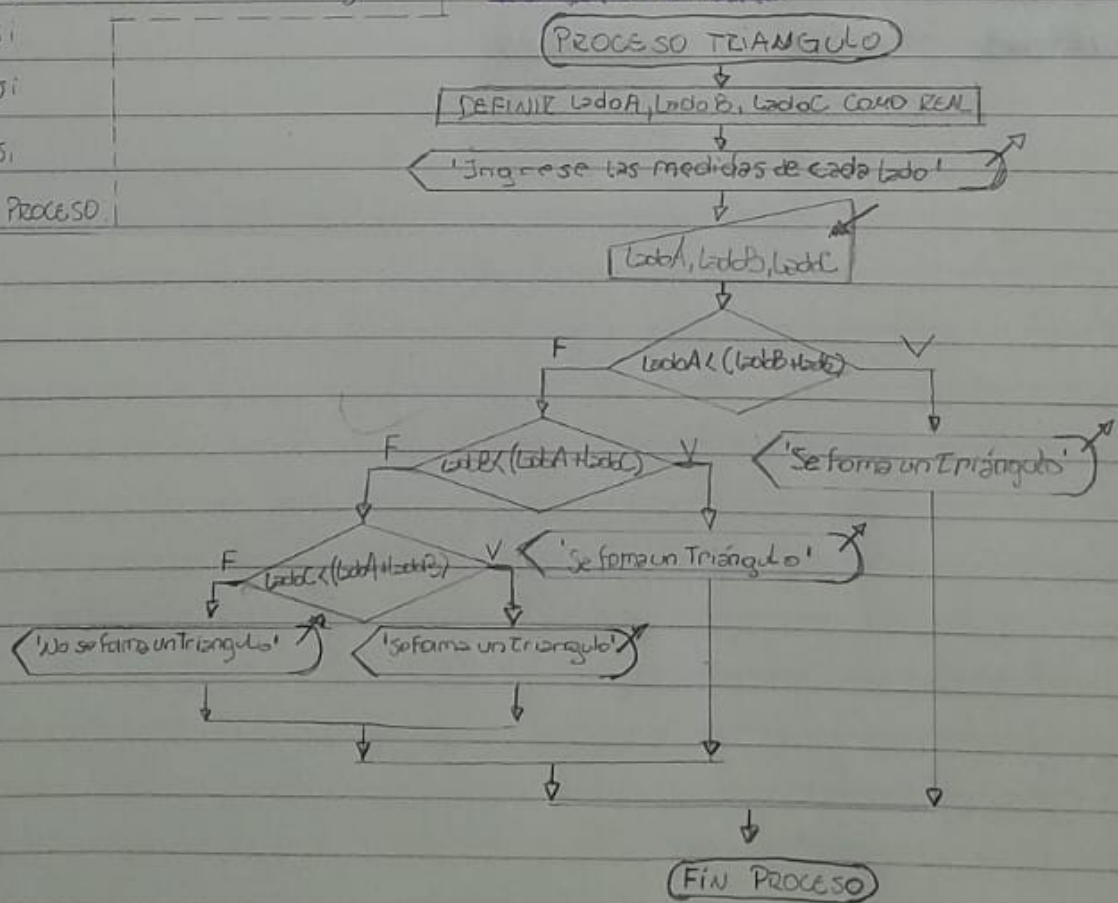 si
si
si
PROCESO
PROCESO TRIANGULO
DEFINIR LadoA, LadoB, LadoC COMO REAL
'Ingrese las medidas de cada lado'
LadoA, LadoB, LadoC
F
LadoA<(LadoB+LadoC)
V
F
LadoB<(LadoA+LadoC)
V
'Se forma un Triángulo'
F
LadoC<(LadoA+LadoB)
V
'Se forma un Triángulo'
'No se forma un Triangulo'
'Se forma un triangulo'
FIN PROCESO